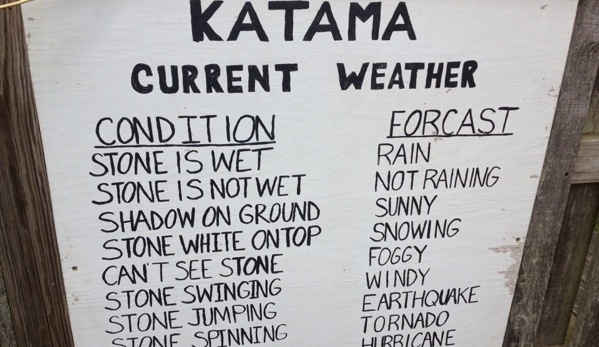 KATAMA
CURRENT WEATHER
CONDITION FORCAST
STONE IS WET RAIN
STONE IS NOT WET NOT RAINING
SHADOW ON GROUND SUNNY
STONE WHITE ON TOP SNOWING
CAN'T SEE STONE FOGGY
STONE SWINGING WINDY
STONE JUMPING EARTHQUAKE
STONE SPINNING TORNADO
HURRICANE